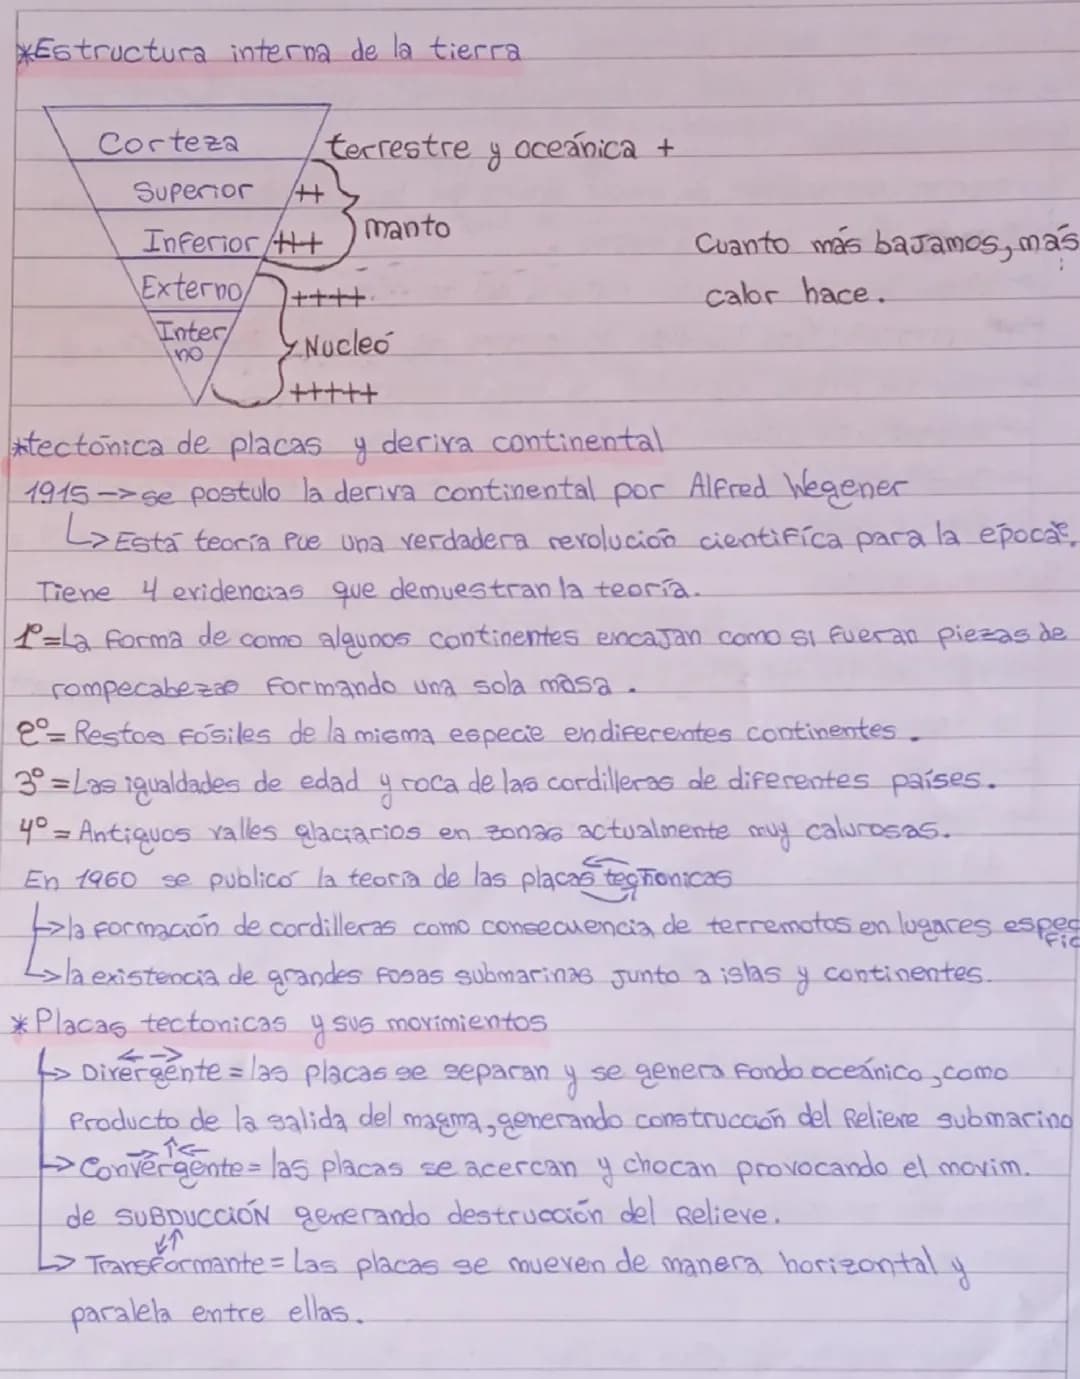 *Estructura interna de la tierra
Corteza terrestre y oceánica +
Superior ++
manto
Inferior +++
Cuanto más bajamos, más
calor hace.
Externo ++++
Inter
no
Nucleó
+++++
*tectónica de placas y deriva continental
1915 -> se postulo la deriva continental por Alfred Wegener
↳ Está teoría fue una verdadera revolución cientifíca para la epoca.
Tiene 4 evidencias que demuestran la teoría.
1º=La forma de como algunos continentes encajan como si fueran piezas de
rompecabezas formando una sola masa.
2º= Restos fósiles de la misma especie en diferentes continentes.
3º=Las igualdades de edad y roca de las cordilleras de diferentes países.
4º= Antiguos valles glaciarios en zonas actualmente muy calurosas.
En 1960 se publicó la teoría de las placas tectonicas
↳ la formación de cordilleras como consecuencia de terremotos en lugares especi
fic
↳ la existencia de grandes fosas submarinas junto a islas y continentes.
* Placas tectonicas y sus movimientos
← →
↳ Divergente = las placas se separan y se genera fondo oceánico, como
Producto de la salida del magma, generando construcción del Relieve submarino
→↑←
↳ Convergente = las placas se acercan y chocan provocando el movim.
de SUBDUCCIÓN generando destrucción del Relieve.
↓↑
↳ Transformante = Las placas se mueven de manera horizontal y
paralela entre ellas.